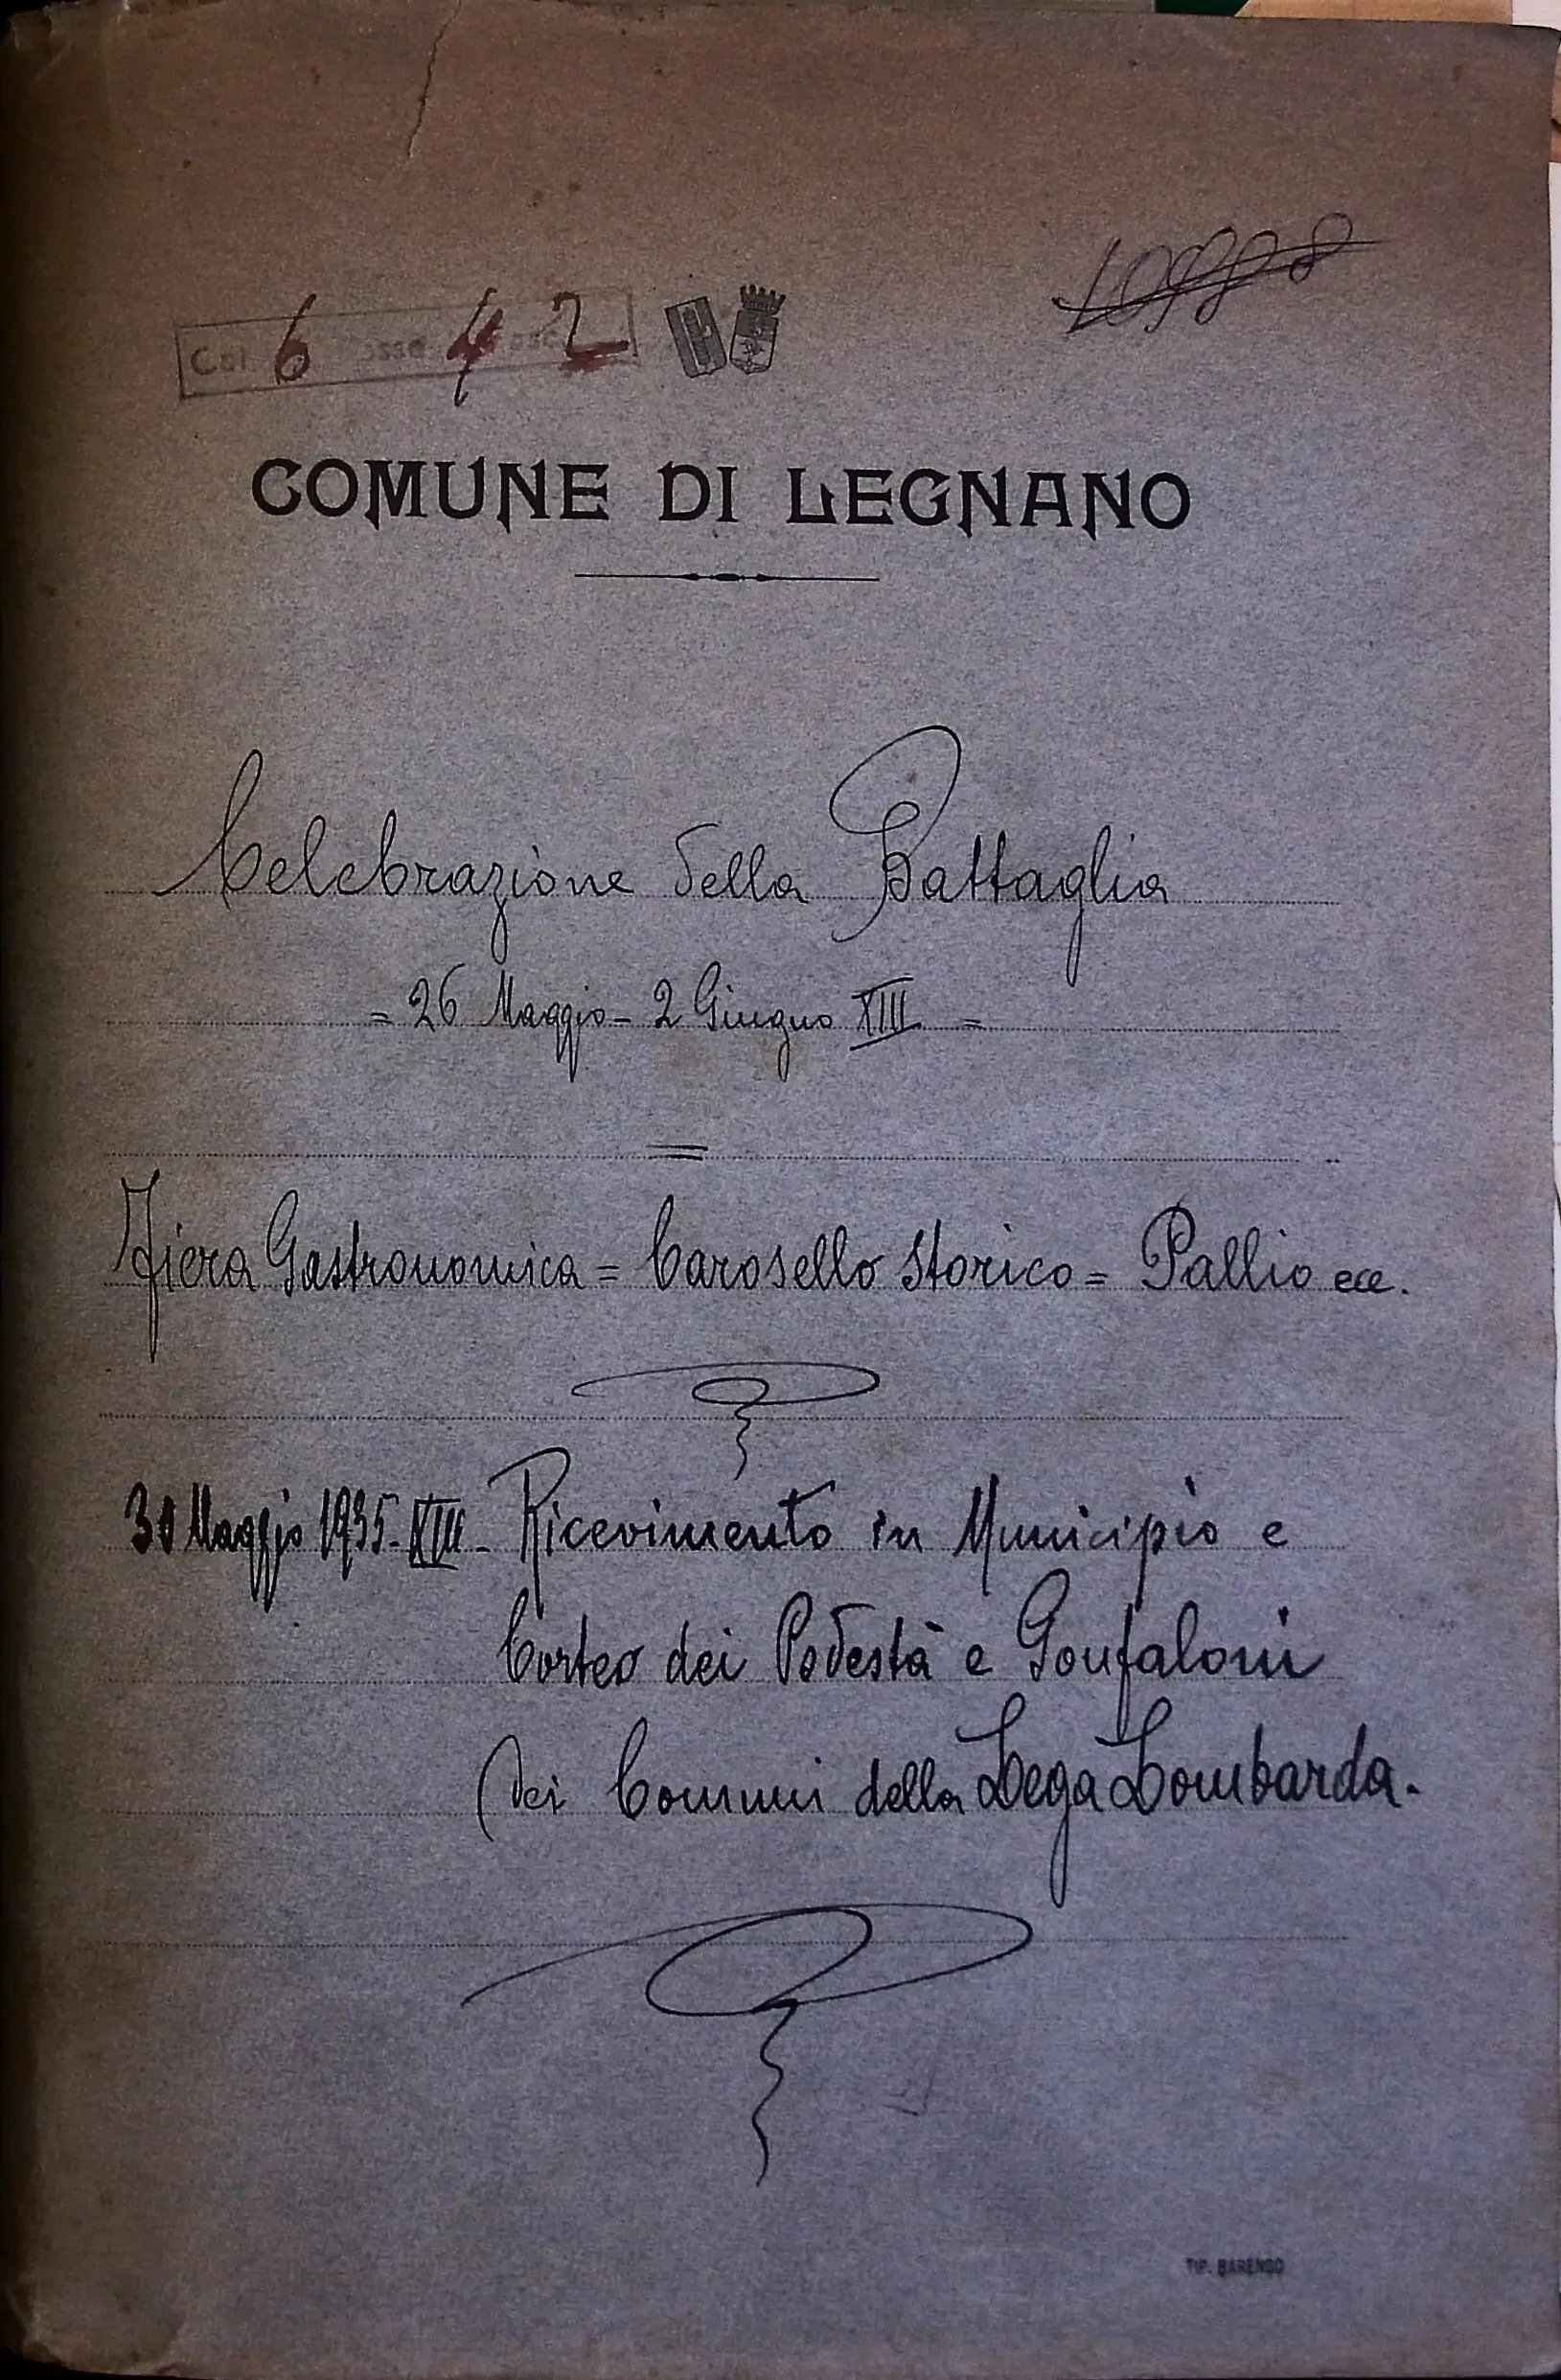 Cat 6 4 2
COMUNE DI LEGNANO
Celebrazione della Battaglia
= 26 Maggio - 2 Giugno XIII =
=
Fiera Gastronomica = Carosello Storico = Pallio ecc.
30 Maggio 1935 - XIII - Ricevimento in Municipio e
Corteo dei Podestà e Gonfaloni
dei Comuni della Lega Lombarda.
TIP. BARENGO